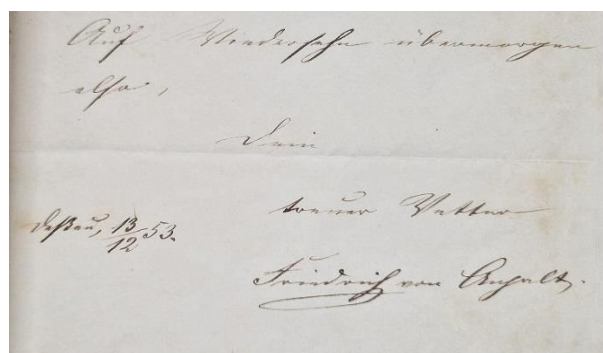 Auf Wiedersehn übermorgen
also,
Dein
treuer Vetter
Deßau, 13/12 53.
Friedrich von Anhalt.